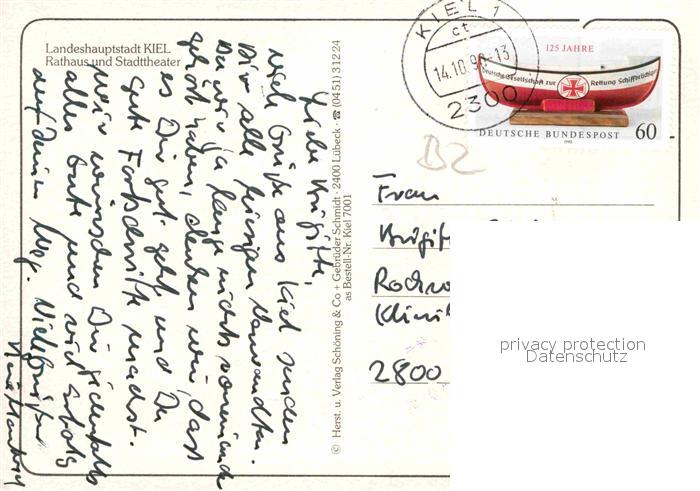 Landeshauptstadt KIEL
Rathaus und Stadttheater
Liebe Brigitte,
viele Grüße aus Kiel senden
Dir alle hiesigen Verwandten.
Da wir ja lange nichts voneinander
gehört haben, denken wir, dass
es Dir gut geht und Du
gute Fortschritte machst.
wir wünschen Dir jedenfalls
alles Gute und viel Erfolg
auf Deinem Weg. Viele Grüße
© Herst. u. Verlag Schöning & Co + Gebrüder Schmidt · 2400 Lübeck · ☎ (04 51) 3 12 24
as Bestell-Nr. Kiel 7001
KIEL 1
ct
14.10.90-13
2300
125 JAHRE
Deutsche Gesellschaft zur Rettung Schiffbrüchiger
DEUTSCHE BUNDESPOST 60
1990
B2
Frau
Brigit
Klini
2800
privacy protection
Datenschutz